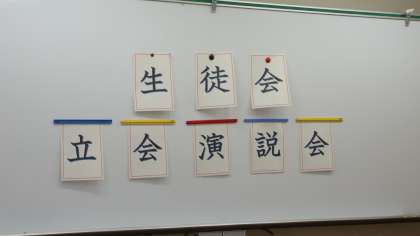 生徒会
立会演説会